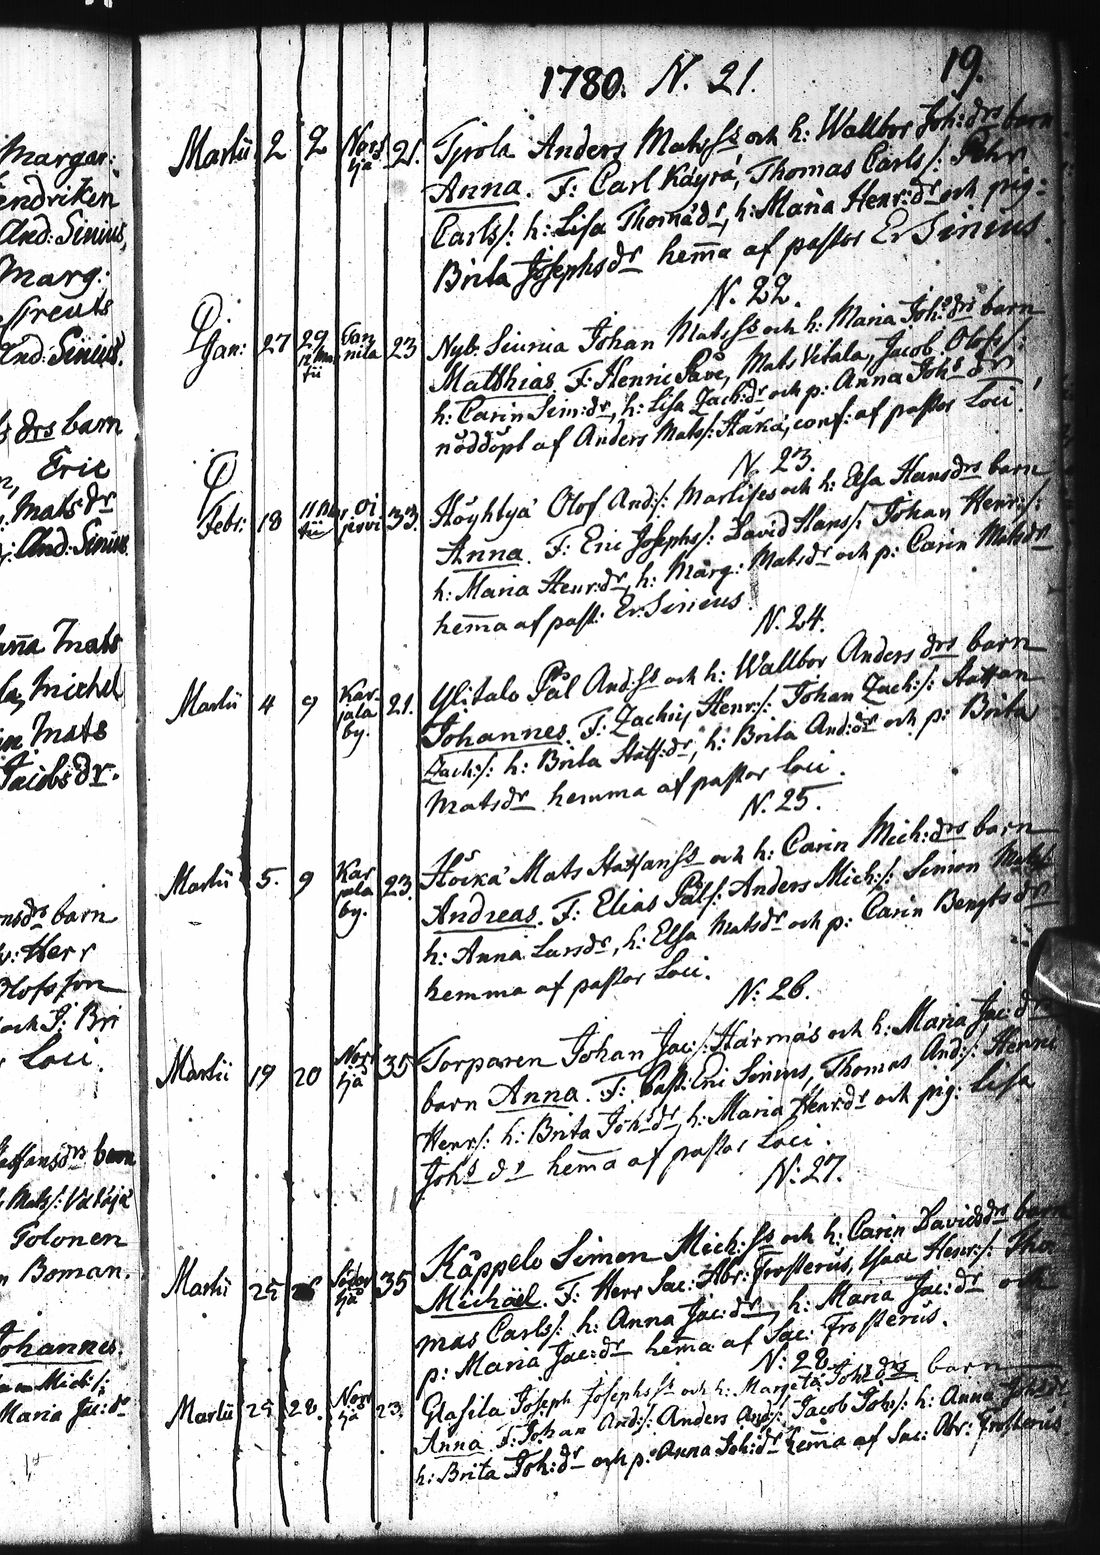 Margar:
Hendriken
And: Sinius,
Marg:
Preuts
And: Sinius.
drs barn
Eric
Matsdr
And: Sinius
Mats
Michel
Mats
Jacobsdr.
drs barn
Herr
Olofsson
och J: Bri
Loci.
Staffansdrs barn
Mats/:
Tolonen
Boman.
Johannes.
Mich:/:
Maria Jac:dr
19.
1780. N. 21.
Martii 2 2 Norr ijå 21. Tjrola Anders Matsss och h: Wallbor Joh:drs barn
Anna. F: Carl Käyrä, Thomas Carls/: Pehr
Carls/: h: Lisa Thomadr, h: Maria Henr:dr och pig:
Brita Josephsdr hem̄a af pastor Er Sinius.
N. 22.
Jan: 27 29 Martii nila 23 Nyb. Siunia Johan Matsss och h: Maria Joh:drs barn
Matthias. F: Henric Påve, Mats Vitala, Jacob Olofs/:
h: Carin Sim:dr, h: Lisa Zach:dr och p: Anna Johs dr
nöddöpt af Anders Mats/: Harka, conf: af pastor Loci.
N. 23.
Febr: 18 11 Martii Oi jervi 33. Höyhtyä Olof And:/: Marlises och h: Elsa Hansdrs barn
Anna. F: Eric Josephs/: David Hans/: Johan Henr:/:
h: Maria Henr:dr, h: Marg: Matsdr och p: Carin Matsdr
hem̄a af past: Er: Sinius.
N. 24.
Martii 4 9 Kar jala by. 21. Ylitalo Pål Andss och h: Wallbor Anders drs barn
Johannes. F: Zachrij Henr:/: Johan Zach:/: Staffan
Zach:/: h: Brita Staff:dr, h: Brita And:dr och p: Brita
Matsdr hemma af pastor loci.
N. 25.
Martii 5. 9 Kar jala by. 23. Höika Mats Staffansss och h: Carin Mich:drs barn
Andreas. F: Elias Påls/: Anders Mich:/: Simon Mats/:
h: Anna Larsdr, h: Elsa Matsdr och p: Carin Bengtsdr
hemma af pastor Loci.
N: 26.
Martii 19 20 Norr ijå 35 Torparen Johan Jac:/: Härmäs och h: Maria Jac:drs
barn Anna. F: Past: Eric Sinius, Thomas And:/: Henric
Henr/: h: Brita Johsdr, h: Maria Henr:dr och pig: Lisa
Johs dr hem̄a af pastor Loci.
N: 27.
Martii 25 26 Söder ijå 35 Käppelo Simon Mich:ss och h: Carin Davidsdrs barn
Michael. F: Herr Sac: Abr: Frosterus, Isaac Henr:/: Tho
mas Carls/: h: Anna Jac:dr, h: Maria Jac:dr och
p: Maria Jac:dr hem̄a af Sac: Frosterus.
N: 28.
Martii 25 28. Norr ijå 23. Glasila Joseph Josephsss och h: Margeta Joh:drs barn
Anna. F: Johan And:/: Anders And:/: Jacob Johs/: h: Anna Johsdr
h: Brita Joh:dr och p: Anna Joh:dr hem̄a af Sac: Abr: Frosterus.